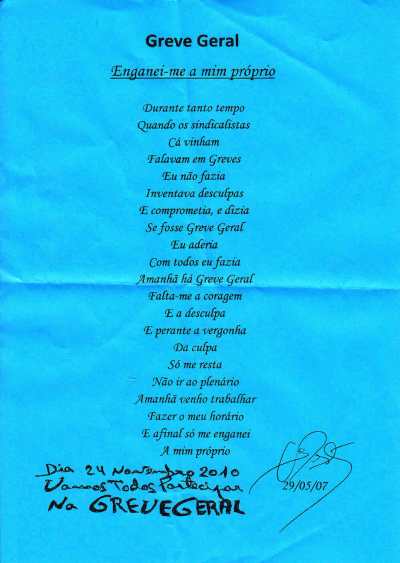 Greve Geral
Enganei-me a mim próprio
Durante tanto tempo
Quando os sindicalistas
Cá vinham
Falavam em Greves
Eu não fazia
Inventava desculpas
E comprometia, e dizia
Se fosse Greve Geral
Eu aderia
Com todos eu fazia
Amanhã há Greve Geral
Falta-me a coragem
E a desculpa
E perante a vergonha
Da culpa
Só me resta
Não ir ao plenário
Amanhã venho trabalhar
Fazer o meu horário
E afinal só me enganei
A mim próprio
29/05/07
Dia 24 Novembro 2010
Vamos Todos Participar
Na GREVE GERAL